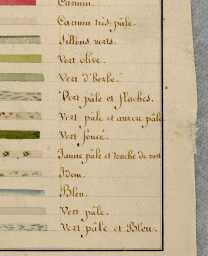 Carmin.
Carmin très pâle.
Sillons verts.
Vert olive.
Vert d'herbe.
Vert pâle et flaches.
Vert pâle et aurore pâle
Vert foncé.
Jaune pâle et touche de vert
Idem.
Bleu.
Vert pâle.
Vert pâle et Bleu.